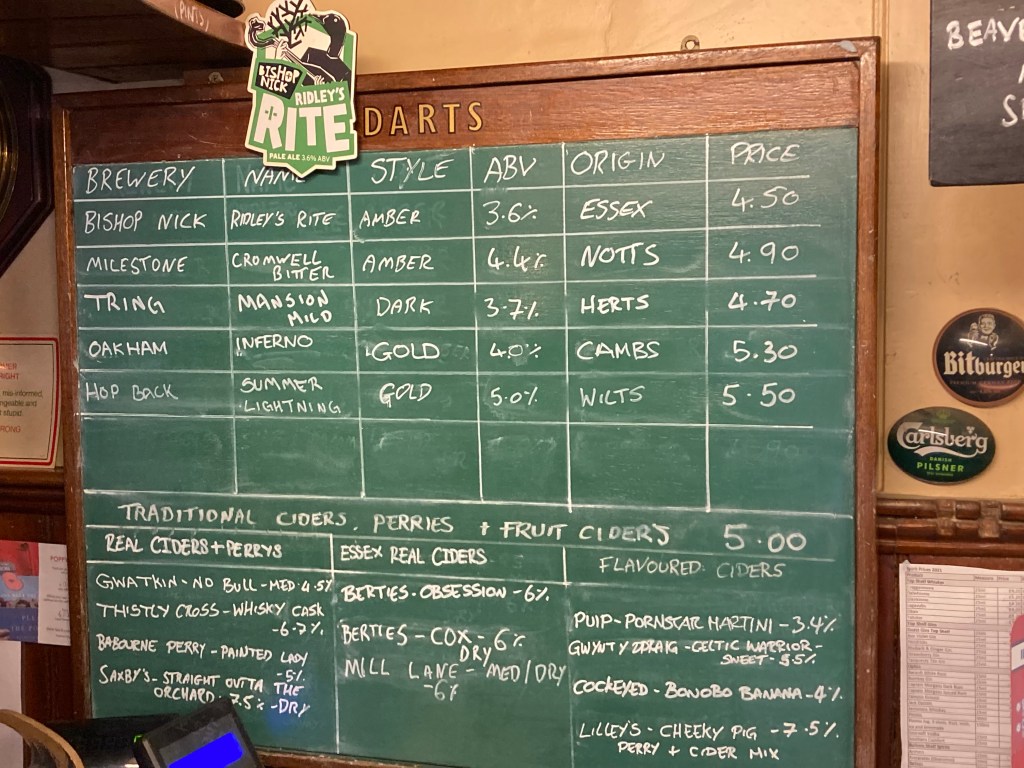 (PINTS)
BISHOP
NICK
RIDLEY'S
RITE
PALE ALE 3.6% ABV
DARTS
BREWERY NAME STYLE ABV ORIGIN PRICE
BISHOP NICK RIDLEY'S RITE AMBER 3.6% ESSEX 4.50
MILESTONE CROMWELL BITTER AMBER 4.4% NOTTS 4.90
TRING MANSION MILD DARK 3.7% HERTS 4.70
OAKHAM INFERNO GOLD 4.0% CAMBS 5.30
HOP BACK SUMMER LIGHTNING GOLD 5.0% WILTS 5.50
TRADITIONAL CIDERS, PERRIES + FRUIT CIDERS 5.00
REAL CIDERS + PERRYS
GWATKIN - NO BULL - MED 4.5%
THISTLY CROSS - WHISKY CASK
- 6.7%
BABOURNE PERRY - PAINTED LADY
- 5%
SAXBY'S - STRAIGHT OUTTA THE
ORCHARD 7.5% - DRY
ESSEX REAL CIDERS
BERTIES - OBSESSION - 6%
BERTIES - COX - 6%
DRY
MILL LANE - MED/DRY
- 6%
FLAVOURED CIDERS
PULP - PORNSTAR MARTINI - 3.4%
GWYNT Y DDRAIG - CELTIC WARRIOR -
SWEET - 5%
COCKEYED - BONOBO BANANA - 4%
LILLEY'S - CHEEKY PIG - 7.5%
PERRY + CIDER MIX
BEAVE
S
Bitburger
Carlsberg
DANISH
PILSNER
RIGHT
mis-informed,
ngeable and
stupid.
RONG
POPP